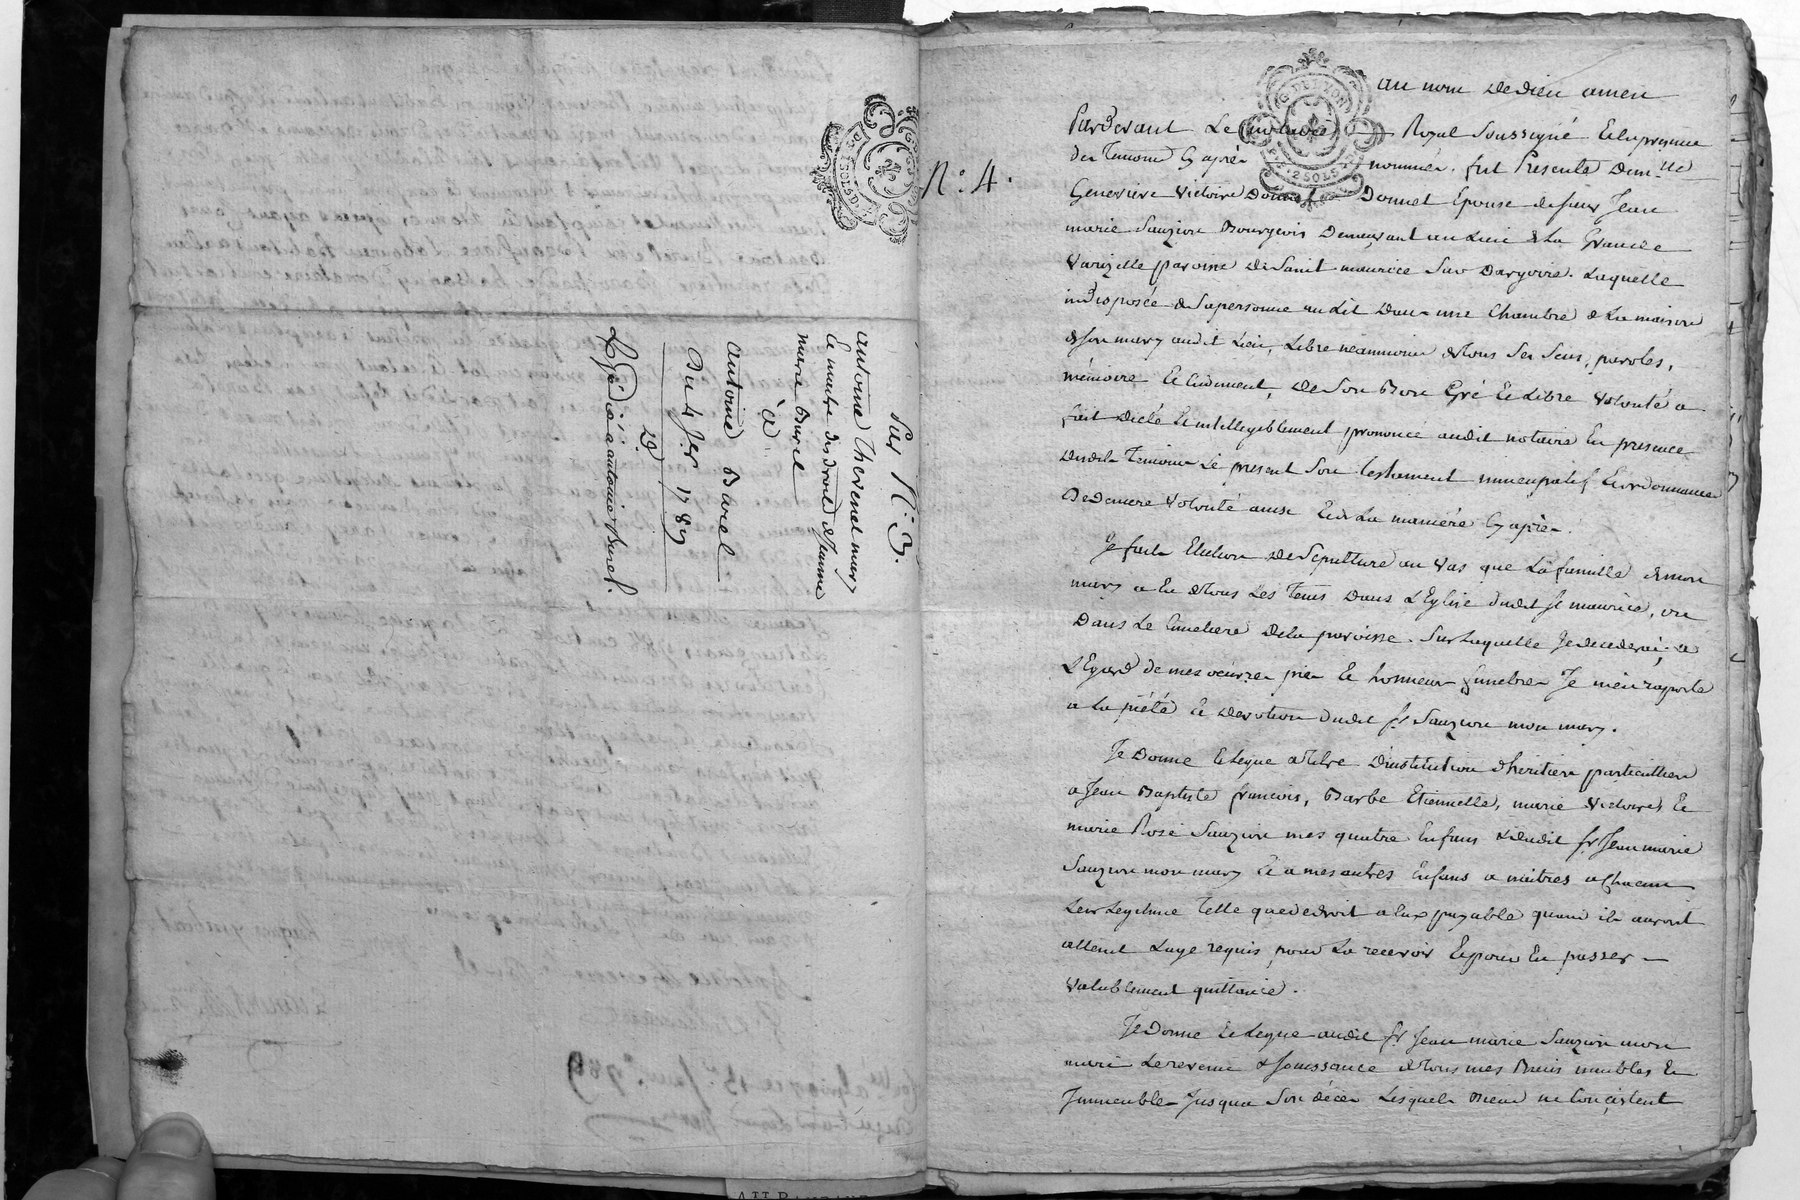 Par N.° 3.
antoine thevenet mary
Et maitre des droits de jeanne
marie Burel
à
antoine Burel
Du 4 jer 1789
Exp.é a antoine Burel.
N.° 4.
G. DE LYON
P.PR. 2 SOLS 8 D.
au nom de Dieu amen
Pardevant Le notaire Royal Soussigné Et en presence
des Temoins Cy aprés nommés. fut Presente Dem.lle
Genevieve Victoire Donnet Épouse de sieur Jean
marie Sauzion Bourgeois Demeurant au Lieu de La Grande
Varizelle paroisse de Saint maurice Sur Dargoire. Laquelle
indisposée de Sa personne au Lit Dans une Chambre de La maison
de son mary audit Lieu, Libre néanmoins de tous Ses Sens, paroles,
mémoire Et Entendement, de Son Bon Gré Et Libre Volonté a
fait dicté Et intelligiblement prononcé audit notaire En presence
desdits Temoins Le present Son testament nuncupatif Et ordonnance
De Derniere Volonté ainsi Et de La maniére Cy aprés.
Je fais Election de Sepulture au Vas que La famille de mon
mary a Eu de tous Les Tems Dans L'Eglise dudit St maurice, ou
Dans Le Cimetiere De la paroisse Sur Laquelle Je decederai; a
L'Egard de mes oeuvres pies Et honneurs funebres Je m'en raporte
a La piété Et devotion dudit Sr Sauzion mon mary.
Je Donne Et Legue a titre D'institution d'heritiers particuliers
a Jean Baptiste françois, Barbe Etiennette, marie Victoire, Et
marie Rose Sauzion mes quatre Enfans Et dudit Sr Jean marie
Sauzion mon mary Et a mes autres Enfans a naitres a Chacun
Leur Legitime telle que de droit a Eux payable quand ils auront
atteint L'age requis pour La recevoir Et pour En passer
Valablement quittance.
Je Donne Et Legue audit Sr Jean marie Sauzion mon
mari Le revenu & Jouissance de tous mes Biens meubles Et
Immeubles Jusqua Son décès Lesquels Biens ne Consistent